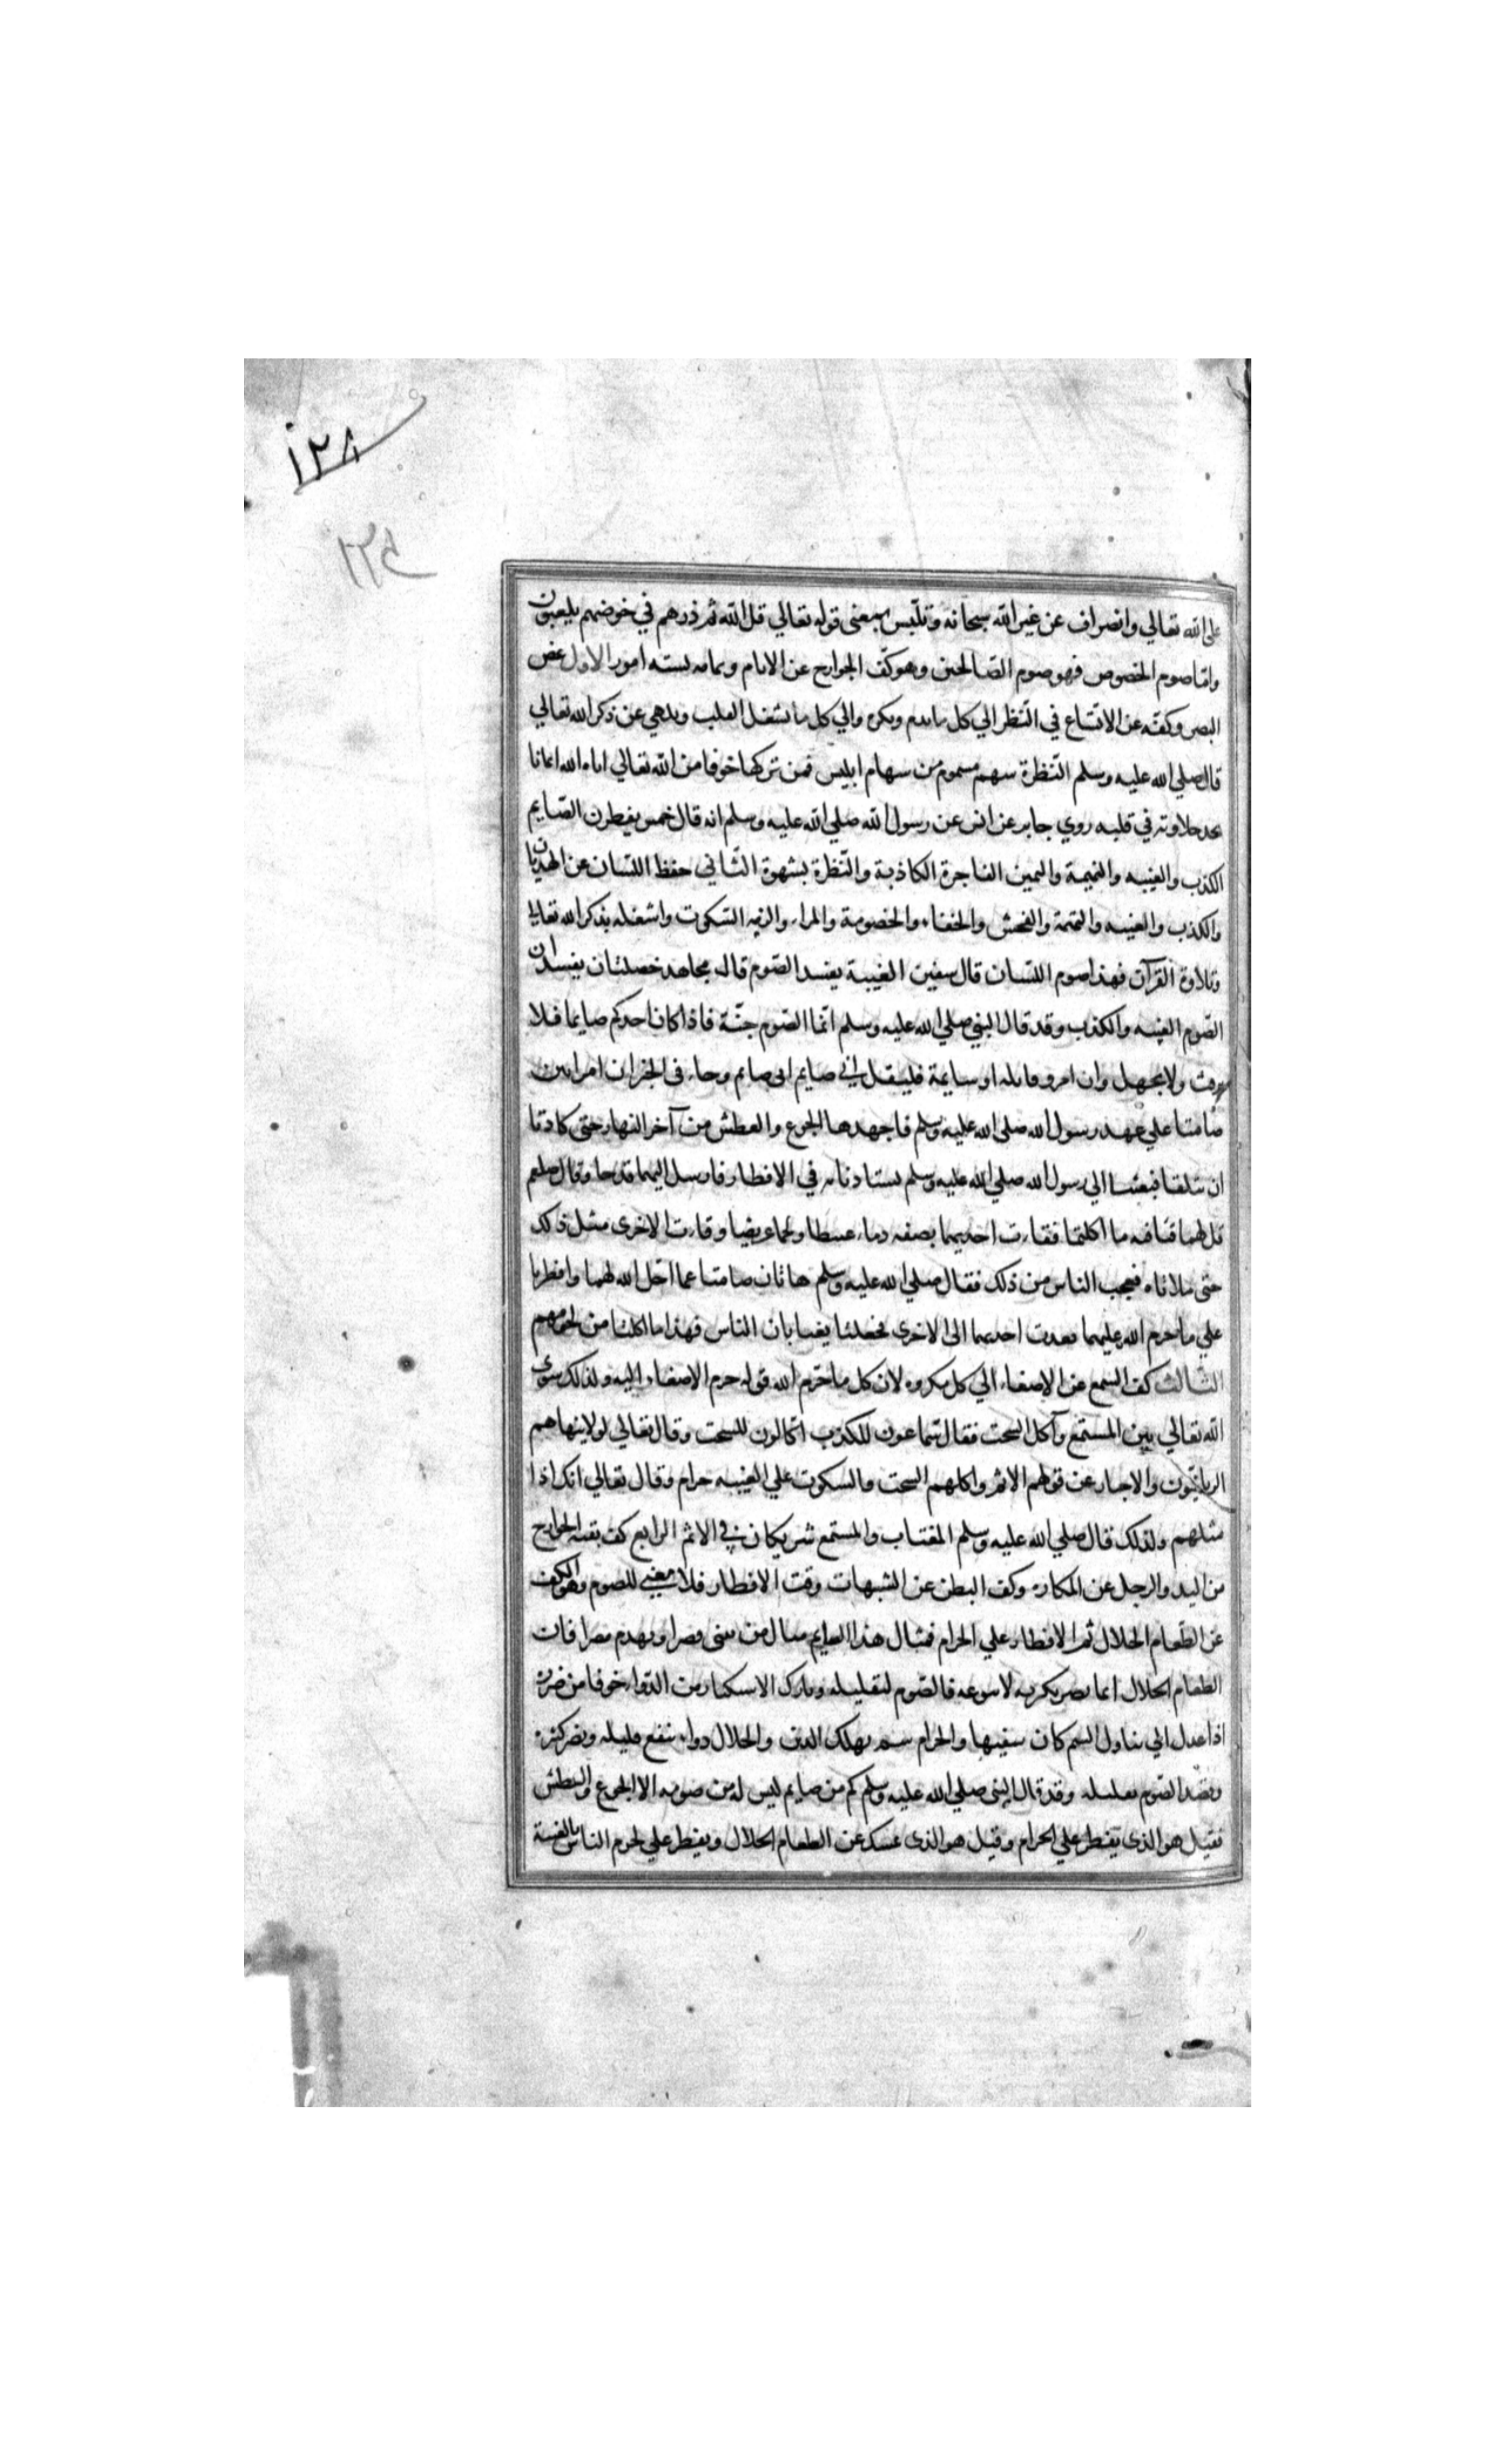 ١٢٨
١٢٤
على الله تعالي وانصراف عن غير الله سبحانه وتلبس بمعنى قوله تعالي قل الله ثم ذرهم في خوضهم يلعبون
واما صوم الخصوص فهو صوم الصالحين وهو كف الجوارح عن الاثام وتمامه بسته امور الاول غض
البصر وكفه عن الاتساع في النظر الي كل ما يذم ويكره والي كل ما يشغل القلب ويلهي عن ذكر الله تعالي
قال صلي الله عليه وسلم النظرة سهم مسموم من سهام ابليس فمن تركها خوفا من الله تعالي اتاه الله ايمانا
يجد حلاوته في قلبه روي جابر عن انس عن رسول الله صلي الله عليه وسلم انه قال خمس يفطرن الصايم
الكذب والغيبه والنميمة واليمين الفاجرة الكاذبة والنظرة بشهوة الثاني حفظ اللسان عن الهذيان
والكذب والغيبه والنميمة والفحش والجفاء والخصومة والمراء والزمه السكوت واشغله بذكر الله تعالي
وتلاوة القرآن فهذا صوم اللسان قال سفين الغيبة يفسد الصوم قال مجاهد خصلتان يفسدان
الصوم الغيبه والكذب وقد قال النبي صلي الله عليه وسلم انما الصوم جنة فاذا كان احدكم صايما فلا
يرفث ولا يجهل وان امرو قاتله او شايمة فليقل اني صايم اني صايم وجاء في الخبر ان امراتين
صامتا علي عهد رسول الله صلي الله عليه وسلم فاجهدهما الجوع والعطش من آخر النهار حتى كادتا
ان تتلفا فبعثتا الي رسول الله صلي الله عليه وسلم يستاذناه في الافطار فارسل اليهما قدحا وقال صلعم
قل لهما قيئا فيه ما اكلتما فقاءت احديهما نصفه دماء عبيطا ولحما عريضا وقاءت الاخرى مثل ذلك
حتى ملاتاه فعجب الناس من ذلك فقال صلي الله عليه وسلم هاتان صامتا عما احل الله لهما وافطرتا
علي ما حرم الله عليهما قعدت احديهما الى الاخرى فجعلتا يغتابان الناس فهذا ما اكلتا من لحومهم
الثالث كف السمع عن الاصغاء الي كل مكروه لان كل ما حرم الله قوله حرم الاصغاء اليه ولذلك سوى
الله تعالي بين المستمع وآكل السحت فقال سماعون للكذب اكالون للسحت وقال تعالي لولا ينهاهم
الربانيون والاحبار عن قولهم الاثم واكلهم السحت والسكوت علي الغيبه حرام وقال تعالي انكم اذا
مثلهم ولذلك قال صلي الله عليه وسلم المغتاب والمستمع شريكان في الاثم الرابع كف بقية الجوارح
من اليد والرجل عن المكاره وكف البطن عن الشبهات وقت الافطار فلا معنى للصوم وهو الكف
عن الطعام الحلال ثم الافطار علي الحرام فمثال هذا الصايم مثال من يبنى قصرا ويهدم مصرا فان
الطعام الحلال انما يضر بكثرته لا بنوعه فالصوم لتقليله وتارك الاستكثار من الدواء خوفا من ضرره
اذا عدل الي تناول السم كان سفيها والحرام سم يهلك الدين والحلال دواء ينفع قليله ويضر كثيره
وقصد الصوم تقليله وقد قال النبي صلي الله عليه وسلم كم من صايم ليس له من صومه الا الجوع والعطش
فقيل هو الذي يفطر علي الحرام وقيل هو الذي يمسك عن الطعام الحلال ويفطر علي لحوم الناس بالغيبة